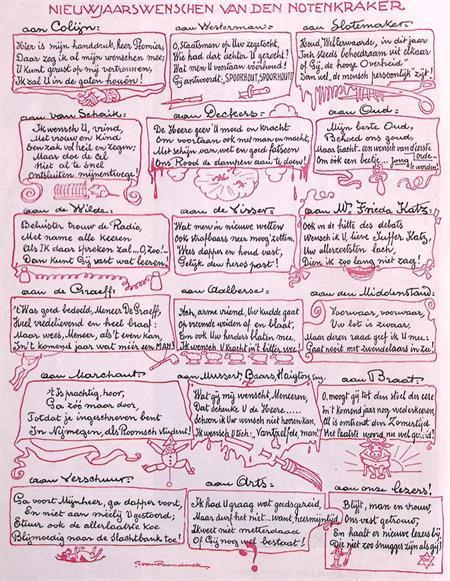 NIEUWJAARSWENSCHEN VAN DEN NOTENKRAKER
aan Colijn:
Hier is mijn handdruk, heer Premier,
Daar zeg ik al mijn wenschen mee;
U kunt gerust op mij vertrouwen,
Ik zal U in de gaten houën!
aan Westerman:
O, Staatsman op Uw zegetocht,
Wie had dat achter U gezocht?
Wat men U voortaan voorhoud'
Gij antwoordt: SPOORHOUT, SPOORHOUT!
aan Slotemaker:
Houd, WelEerwaarde, in dit jaar
Toch steeds gehoorzaam uit elkaar
Of Gij „de hooge Overheid"
Dan wel „de mensch persoonlijk" zijt!
aan van Schaik:
Ik wensch U, vriend,
Met vrouw en kind
Een zak vol heil en zegen;
Maar doe de cel
Niet al te snel
Ontsluiten mijnentwege!
aan Deckers:
De Heere geev' U moed en kracht
Om voortaan ook met man en macht,
Met schijn van wet en goed fatsoen
Ons Rood de dampen aan te doen!
aan Oud:
Mijn beste Oud,
Beheed ons goud,
Maar tracht een wensch van d'eerste
Om óók een beetje... Jong te worden!
aan de Wilde:
Beluister trouw de Radio,
Met name alle keeren
Als ik daar spreken zal... O zoo!...
Dan kunt Gij vast wat leeren!
aan de Visser:
Wat men in nieuwe wetten
Ook strafbaars neer moog zetten,
Wees dapper en houd vast,
Gelijk den heros past!
aan Mr. Frieda Katz:
Ook in de hitte des debats
Wensch ik U, lieve Juffer Katz,
Uw allerzoetsten lach,
Dien ik zoo lang niet zag!
aan de Graeff:
't Was goed bedoeld, Meneer De Graeff,
Heel vredelievend en heel braaf;
Maar wees, Meneer, als 't even kan,
In 't komend jaar wat méér een MAN!
aan Aalberse:
Ach, arme vriend, Uw kudde gaat
Op vreemde weiden af en blaat,
Een ook Uw herders blaten mee;
Ik wensch U kracht in 't bitter wee
aan den Middenstand:
Voorwaar, voorwaar,
Uw lot is zwaar,
Maar deren raad geef ik U mee:
Gaat nooit met zwendelaars in zee!
aan Marchant:
't Is prachtig, hoor,
Ga zóó maar door,
Totdat je ingeschreven bent
In Nijmegen, als Roomsch student!
aan Mussert, Baars, Haighton enz.
Wat gij mij wenscht, Meneeren,
Dat schenke U de Heere......
Mocht Hij Uw wensch niet hooren kan,
Ik wensch U tich: „Vantzelfde man"!
aan Braat:
O, moogt gij tot den stiel des eere
In 't komend jaar nog wederkeeren,
Al is omtrent den Zomertijd
Het laatste woord nu wel gezeid!
aan Verschuur:
Ga voort Mijnheer, ga dapper voort,
En niet aan maelij U gestoord;
Stuur ook de allerlaatste koe
Blijmoedig naar de slachtbank toe!
aan Arts:
Ik had U graag wat goedsgezeid,
Maar durf het niet... want, heeremijntijd
Ik weet niet metterdaad
Of Gij nog wel bestaat!
aan onze lezers!
Blijft, man en vrouw,
Ons vast getrouw,
En haalt er nieuwe lezers bij,
Die niet zoo snugger zijn als gij!